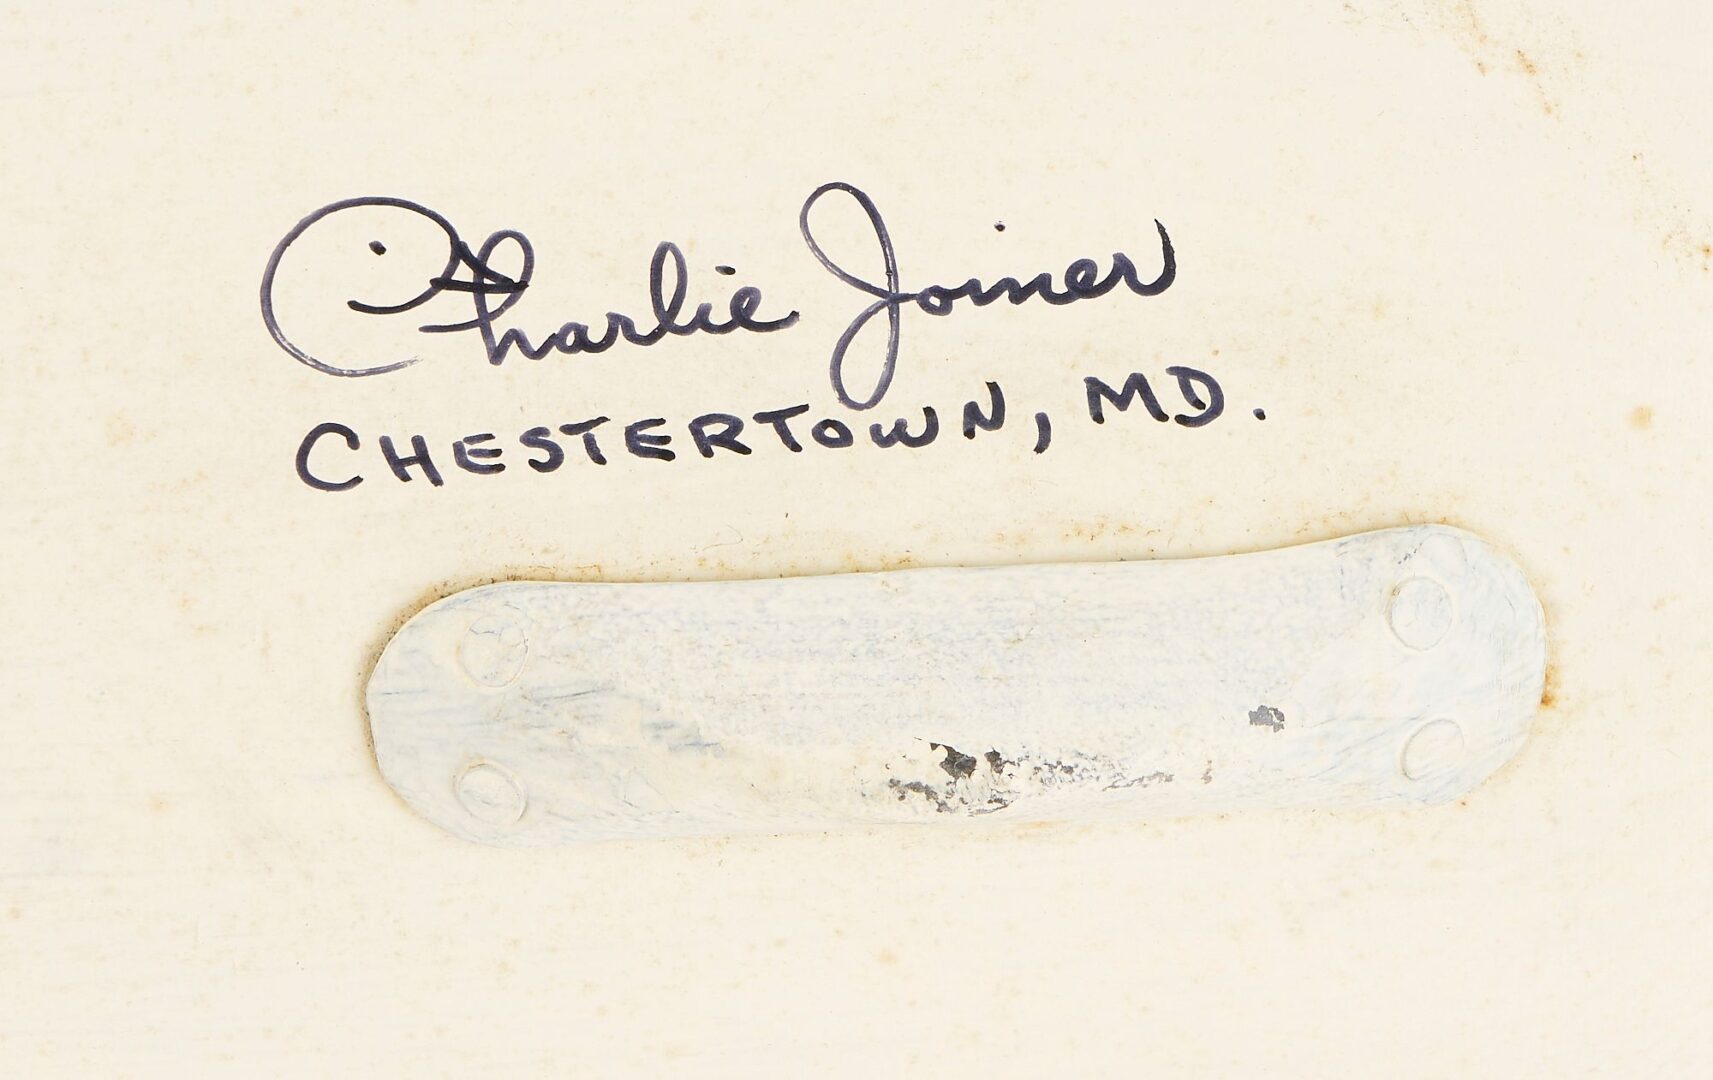 Charlie Joiner
CHESTERTOWN, MD.